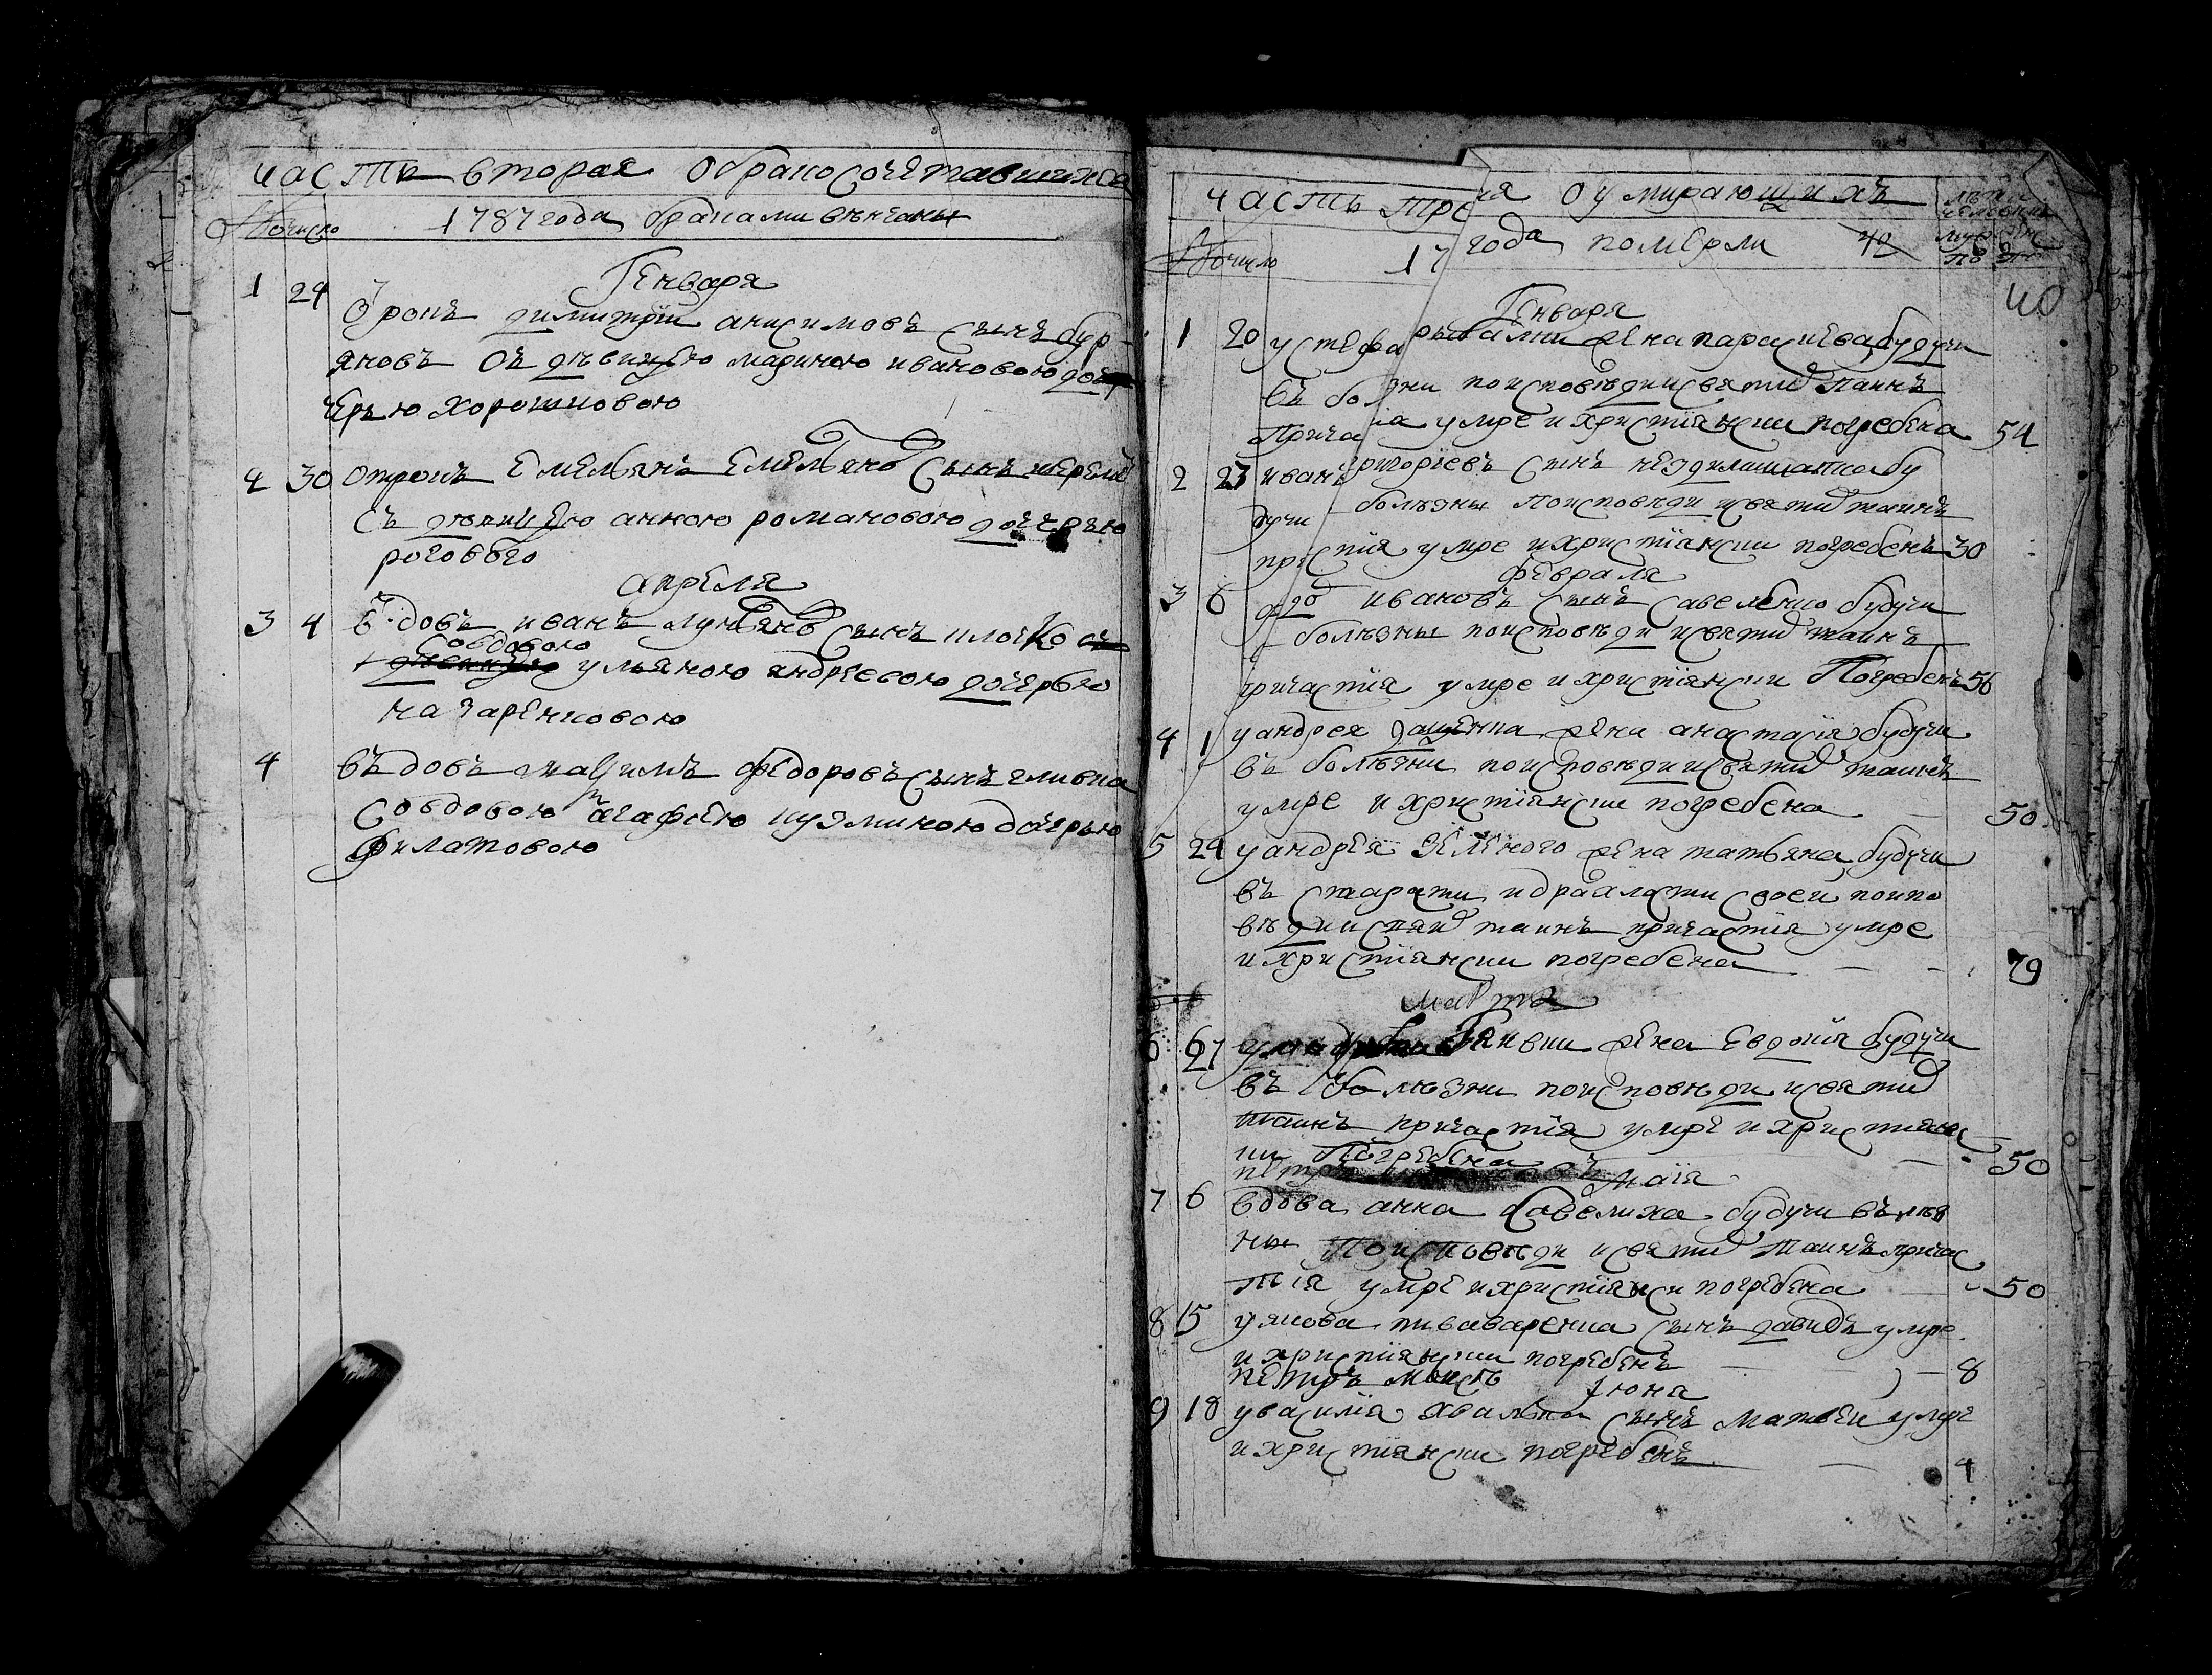 часть вторая о бракосочетавшихся
число 1787 года браками венчаны
Генваря
1 24 Отрокъ димитрїи анисимовъ сынъ бур-
яковъ съ девицею мариною ивановою доч
ерью хорошковою
30 отрокъ Емельянъ Емельяновъ сынъ
съ девицею анною романовою дочерью
рогового
апреля
3 4 вдовъ иванъ сынъ съ
совдовою ульяною андреевою дочерью
назаренковою
4 въдовъ маѯимъ федоровъ сынъ сливка
совдовою агафиею кузминою дочерью
филатовою
часть тре ия о умирающихъ лѣта
число 17 года померли 40 муж жен
Генваря 40
1 20 у стефа жена параскева будучи
въ бол зни по исповѣди и святи таинъ
прича ıа умре и христїянски погребена 54
2 23 иванъ ригорїевъ сынъ бу
дучи болѣзны по исповѣди и святи таинъ
при тия умре и христїянски погребенъ 30
февраля
3 6 ивановъ сынъ савеленко будучи
болѣзны по исповѣди и святи таинъ
причастїя умре и христїянски Погребенъ 56
4 1 у андрея жена анастасїя будучи
въ болѣзни по исповѣди и святи таинъ
умре и христїянски погребена 50
5 24 у андрея Зеленого жена татьяна будучи
въ старости и драхлости своей по испо
вѣди и таинъ причастїя умре
и христїянски погребена 79
марта
6 27 жена Евдокїя будучи
въ болѣзни по исповѣди и святи
таинъ причастїя умре и християнс
ки Погребена 50
петръ маїя
7 6 вдова анна савелиха будучи въ
ны По исповѣди и святи таинъ причас
тїя умре и христїянски погребена 50
8 15 у якова пиваваренка сынъ давидъ умре
и христїянски погребенъ 8
петръ їюна
9 18 у василїя сынъ матвеи умре
и христїянски погребенъ 4